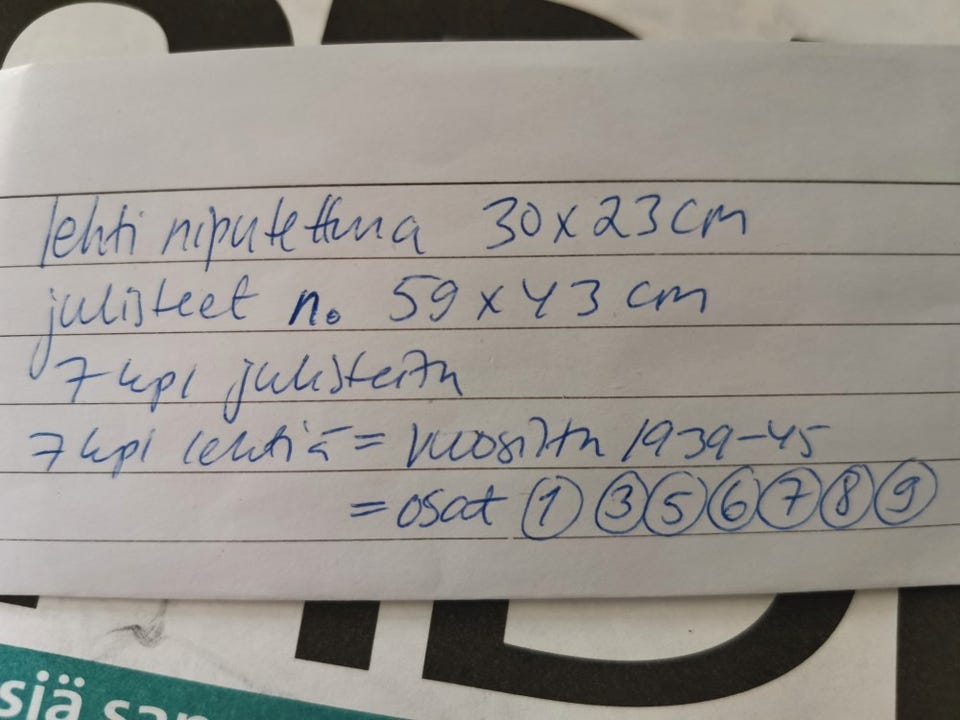 lehti niputettuna 30x23cm
julisteet n. 59x43 cm
7 kpl julisteita
7 kpl lehtiä = vuosilta 1939-45
= osat 1 3 5 6 7 8 9
siä san